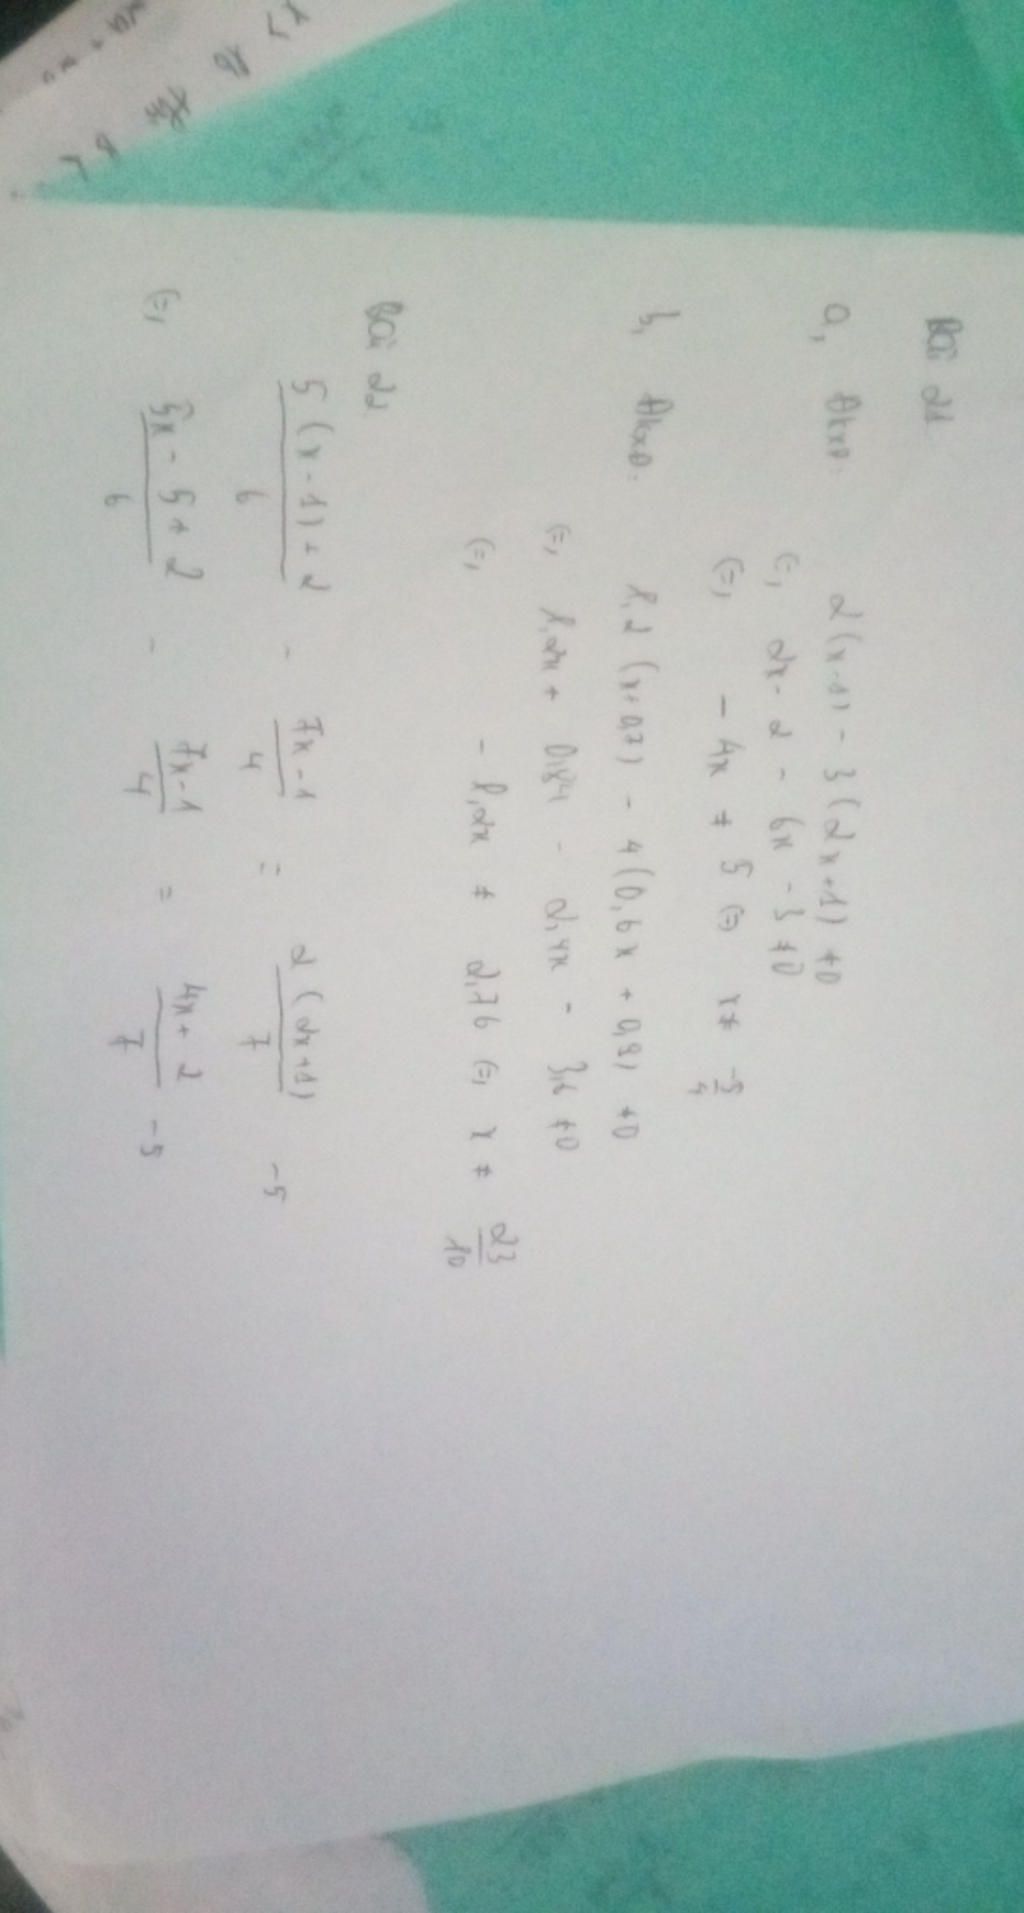 Bài 21
a, ĐKXĐ: 2(x-1) - 3(2x+1) ≠0
(=, 2x - 2 - 6x - 3 ≠0
(=, - 4x ≠ 5 (=) x ≠ -5/4
b, ĐKXĐ: 1,2 (x+0,7) - 4(0,6x + 0,9) ≠0
(=, 1,2x + 0,84 - 2,4x - 3,6 ≠0
(=, - 1,2x ≠ 2,76 (=, x ≠ 23/10
Bài 22
5(x-1)+2/6 - 7x-1/4 = 2(2x+1)/7 -5
(=, 5x - 5 + 2/6 - 7x-1/4 = 4x + 2/7 -5